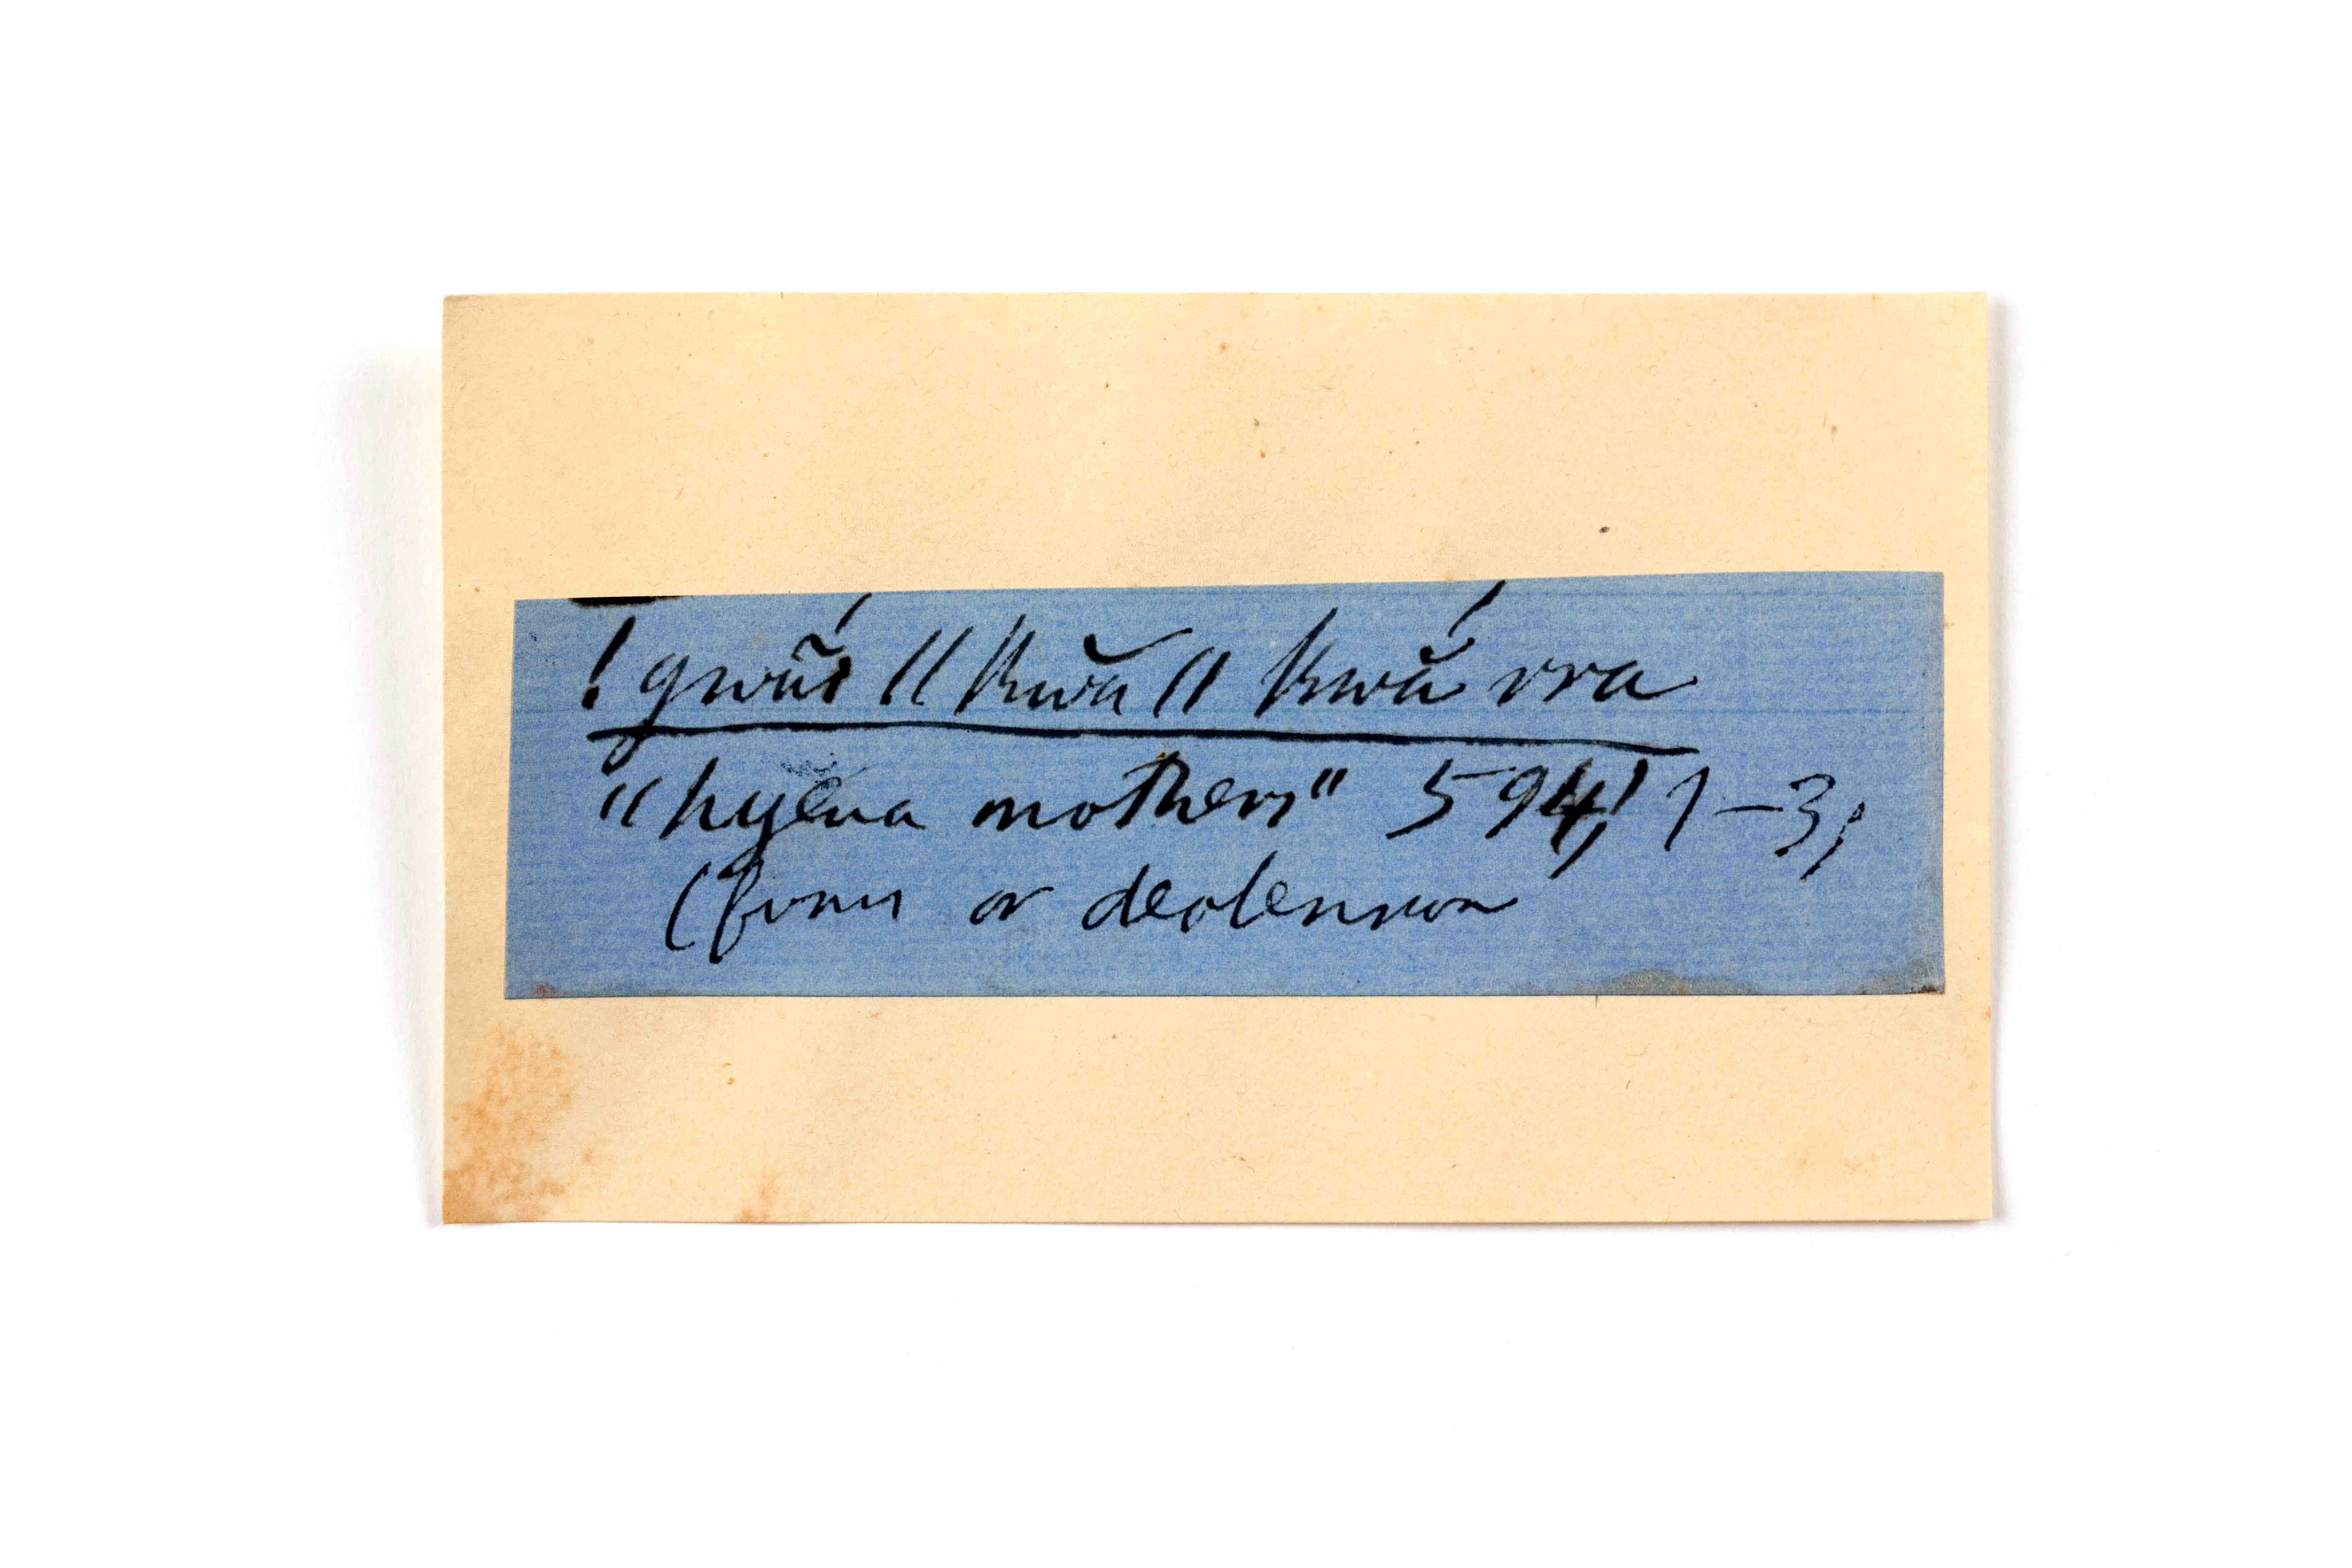 !gwãí ǁkwă ǁkwắ rra
"hyena mothers" 594, 1–3,
(form or declension